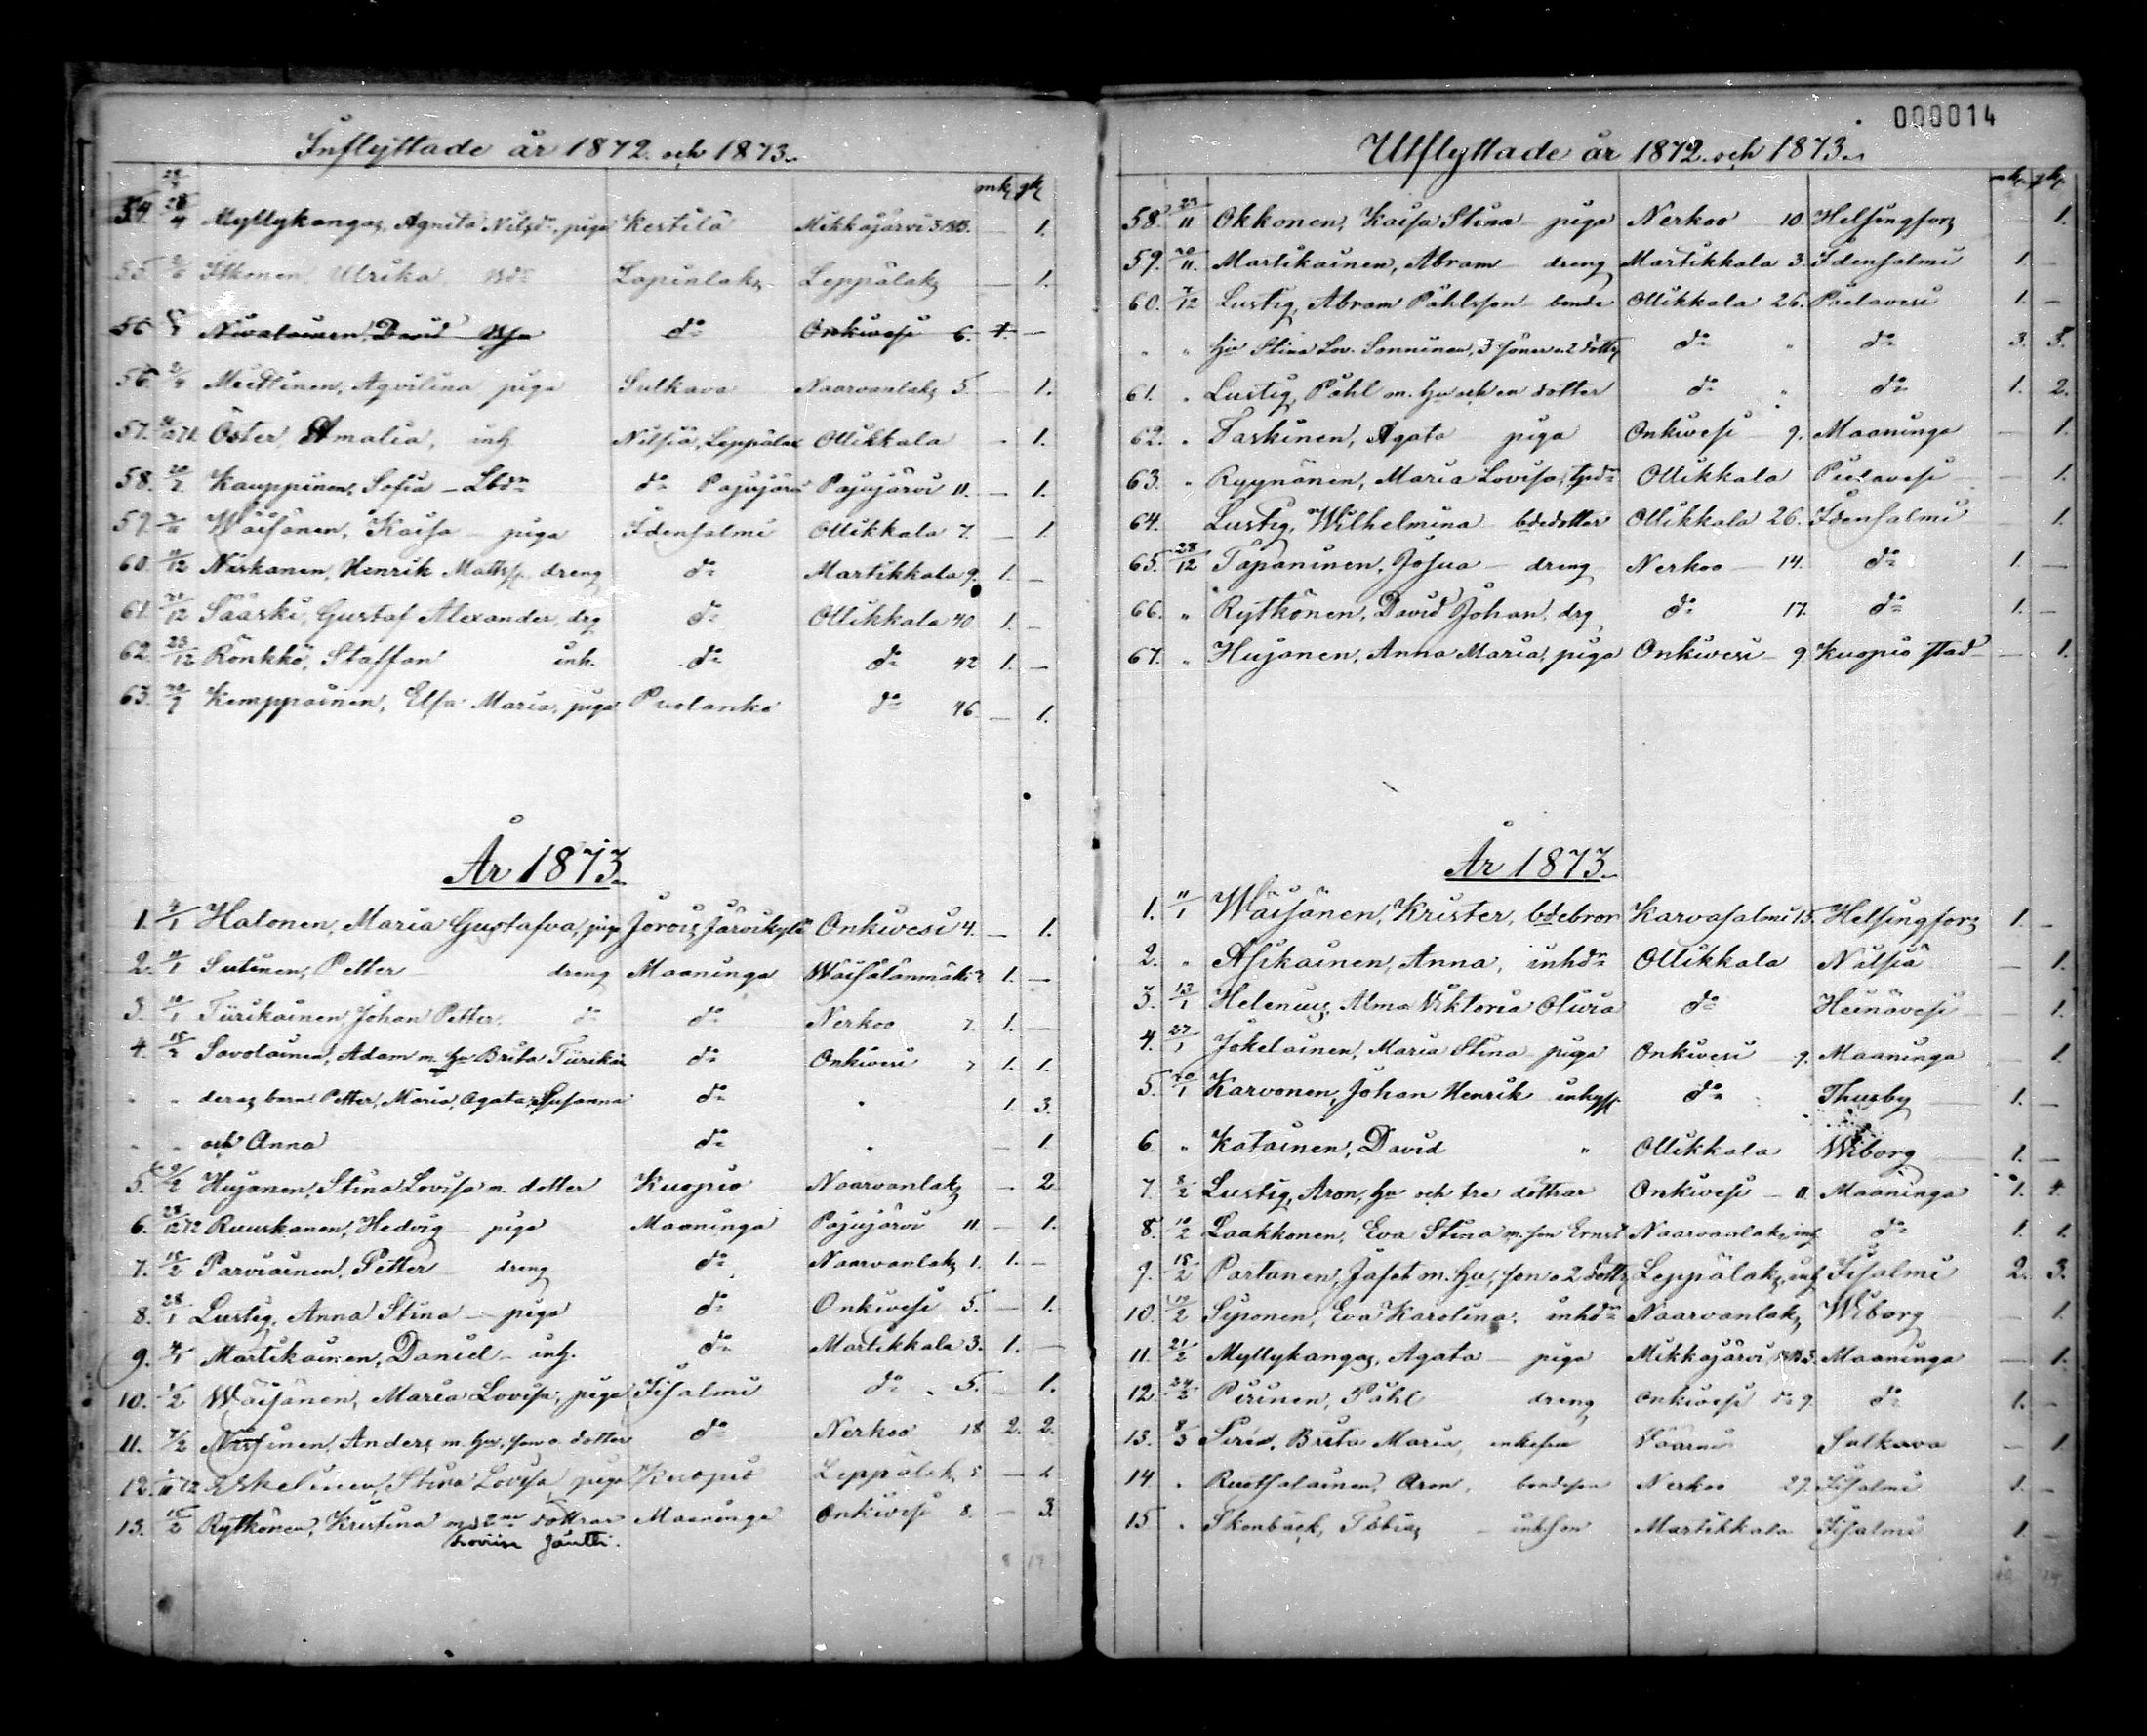 000014
Inflyttade år 1872 och 1873.
mk qk
54. 28/4 Myllykangas, Agneta Nilsdr, piga Kestilä Mikkajärvi 3 — 1.
55. Itkonen, Ulrika Lapinlaks Leppälaks — 1.
56 Nivalainen, David do Onkivesi 6. 1. —
56. Miettinen, Aqvilina piga Sulkava Naarvanlaks 5. — 1.
57. Öster, Amalia, inh. Nilsiä, Leppälax Ollikkala - 1.
58. Kauppinen, Sofia — Lbdr do Pajujärvi Pajujärvi 11. — 1.
59. Wäisänen, Kaisa — piga Idensalmi Ollikkala 7. — 1.
60. Niskanen, Henrik Mattss. dreng do Martikkala 9. 1. —
61. Sääski, Gustaf Alexander, drg do Ollikkala 40 1. —
62. 23/12 Rönkkö, Staffan inh. do do 42 1. —
63. Kemppainen, Elsa Maria, piga Puolanko do 46 — 1.
År 1873.
1. 4/1 Halonen, Maria Gustafva, piga Jorois, Järvikylä Onkivesi 4. — 1.
2. Sutinen, Petter dreng Maaninga Wäisälänmäki 1. —
3. 10/1 Tiirikainen, Johan Petter. do do Nerkoo 7. 1. —
4. Savolainen, Adam m. hu Brita Tiirikain do Onkivesi 7 1. 1.
" " deras barn Petter, Maria, Agata, Susanna do " 1. 3.
" " och Anna do " — 1
5. Hujanen, Stina Lovisa m. dotter Kuopio Naarvanlaks — 2
6. 28/12 72 Ruuskanen, Hedvig — piga Maaninga Pajujärvi 11. — 1.
7. 18/2 Parviainen, Petter dreng do Naarvanlaks 1. 1. —
8. 28/1 Lustig, Anna Stina — piga do Onkivesi 5. — 1.
9. Martikainen, Daniel — inh. do Martikkala 3. 1. —
10. 1/2 Wäisänen, Maria Lovisa, piga Iisalmi do 5. — 1.
11. 7/2 Nissinen, Anders m. hu, son o. dotter do Nerkoo 18 2. 2.
12. Eskelinen, Stina Lovisa, piga Kuopio Leppälaks 5 — 1
13. 15/2 Rytkönen, Kristina med 2ne döttrar Maaninga Onkivesi 8. — 3.
Loviisa Jäntti.
8 19
Utflyttade år 1872 och 1873.
mk. qk.
58. 23/11 Okkonen, Kaisa Stina — piga Nerkoo 10. Helsingfors — 1.
59. Martikainen, Abram dreng Martikkala 3. Idensalmi 1. —
60. 7/12 Lustig, Abram Påhlsson bonde Ollikkala 26. Pielavesi 1. —
" " hu Stina Lov. Sonninen, 3 söner o. 2 döttr do " do 3. 3.
61. " Lustig, Påhl m. hu och en dotter do " do 1. 2.
62. " Taskinen, Agata piga Onkivesi 9. Maaninga — 1.
63. " Ryynänen, Maria Lovisa, Ollikkala Pielavesi — 1.
64. Lustig, Wilhelmina bdedotter Ollikkala 26. Idensalmi 1.
65. 28/12 Tapaninen, Josua — dreng Nerkoo — 14. do 1. —
66. " Rytkönen, David Johan, drg do 17. do 1. —
67. " Hujanen, Anna Maria, piga Onkivesi 9. Kuopio stad — 1.
År 1873.
1. 11/1 Wäisänen, Krister, bdebror Karvasalmi 15. Helsingfors 1. —
2. " Asikainen, Anna, inhdr Ollikkala Nilsiä — 1.
3. 13/1 Helenius, Alma Viktoria Olivia do Heinävesi — 1.
4. 27/1 Jokelainen, Maria Stina piga Onkivesi 9. Maaninga — 1.
5. Karvonen, Johan Henrik inhyss. do Thusby 1. —
6. " Katainen, David " Ollikkala Wiborg 1. —
7. 8/2 Lustig, Aron, hu och tre döttrar Onkivesi — 11. Maaninga 1. 4.
8. 10/2 Laakkonen, Eva Stina m. son Ernst Naarvanlaks, inh do 1. 1.
9. 18/2 Partanen, Jafet m. hu, son o 2 döttr, Leppälaks, inh Iisalmi 2. 3.
10. 19/2 Siponen, Eva Karolina, inhdr Naarvanlaks Wiborg — 1.
11. 21/2 Myllykangas, Agata — piga Mikkajärvi Maaninga — 1.
12. 24/2 Pirinen, Påhl dreng Onkivesi 9. do 1. —
13. 8/3 Brita Maria, Sulkava — 1
14. " Ruotsalainen, Aron, bondeson Nerkoo 27. Iisalmi 1. —
15. " Stenbäck, Tobias — inhson Martikkala Iisalmi 1. —